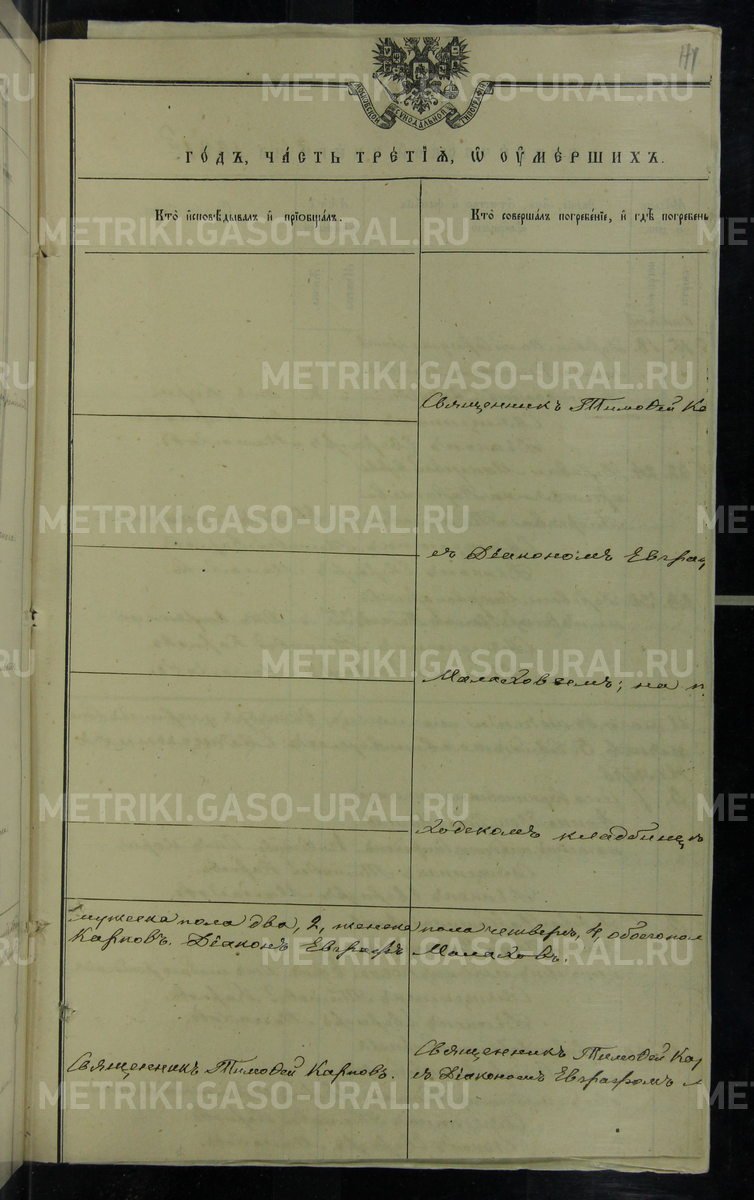 141
годъ, часть третїѧ, ѡ оумершихъ.
Кто исповѣдывалъ и прїобщалъ.
Кто совершалъ погребенїе, и гдѣ погребены
Священникъ Тимоѳей Ка
съ Діакономъ Евграф
Малаховымъ; на п.
ходскомъ кладбищѣ
мужеска пола два, 2, женска пола четверо, 4, обоего пол
Карповъ. Діаконъ Евграфъ Малаховъ.
Священникъ Тимоѳей Карповъ.
Священникъ Тимоѳей Кар
съ Діакономъ Евграфомъ
METRIKI.GASO-URAL.RU